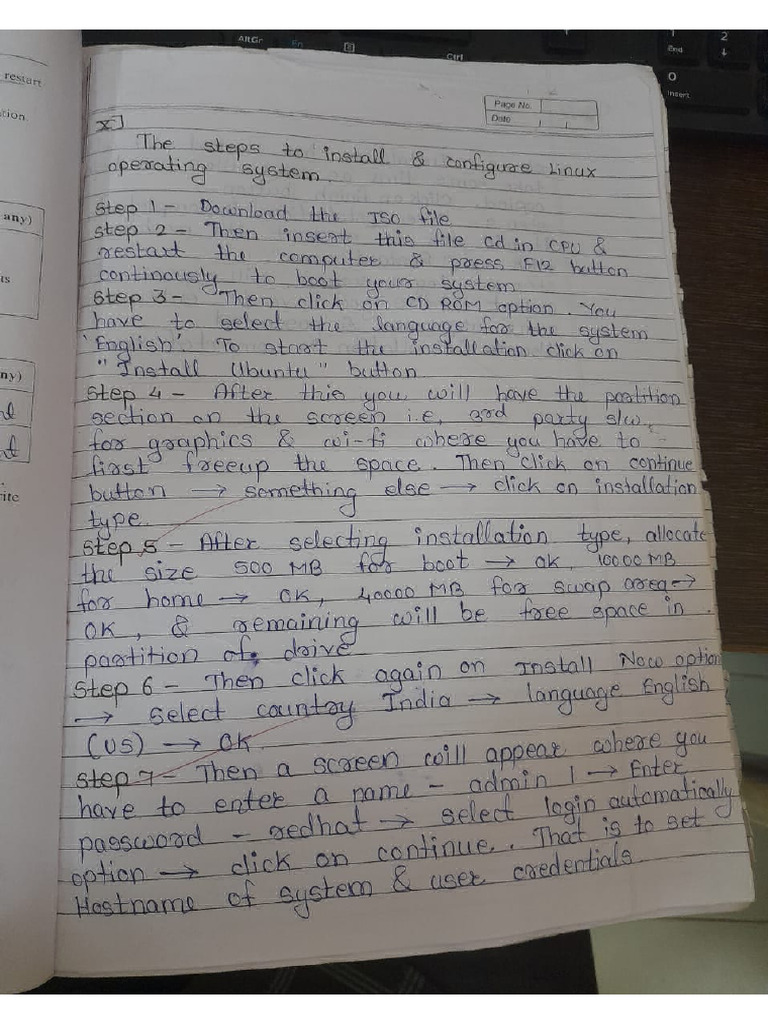 AltGr
Ctrl
1
End
2
0
Insert
restart
tion
any)
ny)
rite
Page No.
Date
x]
The steps to install & configure Linux
operating system
Step 1 - Download the ISO file
Step 2 - Then insert this file cd in CPU &
restart the computer & press F12 button
continously to boot your system
Step 3 - Then click on CD ROM option. You
have to select the language for the system
'English' To start the installation click on
"Install Ubuntu" button
Step 4 - After this you will have the partition
section on the screen i.e, 3rd party s/w,
for graphics & wi-fi where you have to
first freeup the space. Then click on continue
button → something else → click on installation
type.
Step 5 - After selecting installation type, allocate
the size 500 MB for boot → ok, 10000 MB
for home → OK, 40000 MB for swap area →
OK, & remaining will be free space in
partition of drive
Step 6 - Then click again on Install Now option
→ select country India → language English
(US) → OK
Step 7 - Then a screen will appear where you
have to enter a name - admin 1 → Enter
password - redhat → select login automatically
option → click on continue. That is to set
Hostname of system & user credentials